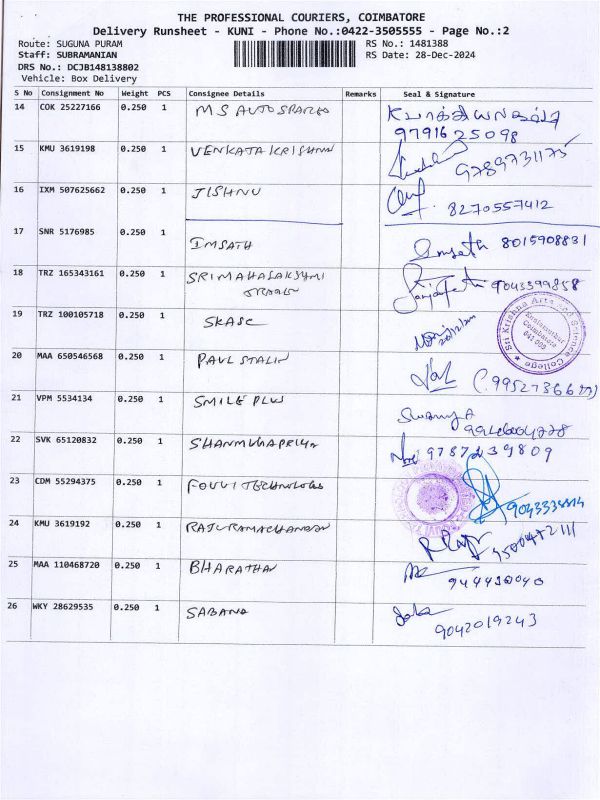 THE PROFESSIONAL COURIERS, COIMBATORE
Delivery Runsheet - KUNI - Phone No.:0422-3505555 - Page No.:2
Route: SUGUNA PURAM
RS No.: 1481388
Staff: SUBRAMANIAN
RS Date: 28-Dec-2024
DRS No.: DCJB148138802
Vehicle: Box Delivery
S No Consignment No Weight PCS Consignee Details Remarks Seal & Signature
14 COK 25227166 0.250 1 M S AUTO SPARES
9791625098
15 KMU 3619198 0.250 1 VENKATA KRISHNN 9789731175
16 IXM 507625662 0.250 1 JISHNU 8270557412
17 SNR 5176985 0.250 1 IMSATH Imsath 8015908831
18 TRZ 165343161 0.250 1 SRIMAHALAKSHMI 9043399858
19 TRZ 100105718 0.250 1 SKASC
Sri Krishna Arts and Science College
Kuniamuthur
Coimbatore
641 008
20 MAA 650546568 0.250 1 PAUL STALIN
21 VPM 5534134 0.250 1 SMILE PLUS
22 SVK 65120832 0.250 1 SHANMUHAPRIYA 9787239809
23 CDM 55294375 0.250 1 FOUVI TECHNOLOGS
24 KMU 3619192 0.250 1 RAJURAMACHANDAN
25 MAA 110468720 0.250 1 BHARATHAN
26 WKY 28629535 0.250 1 SABANA 9042019243